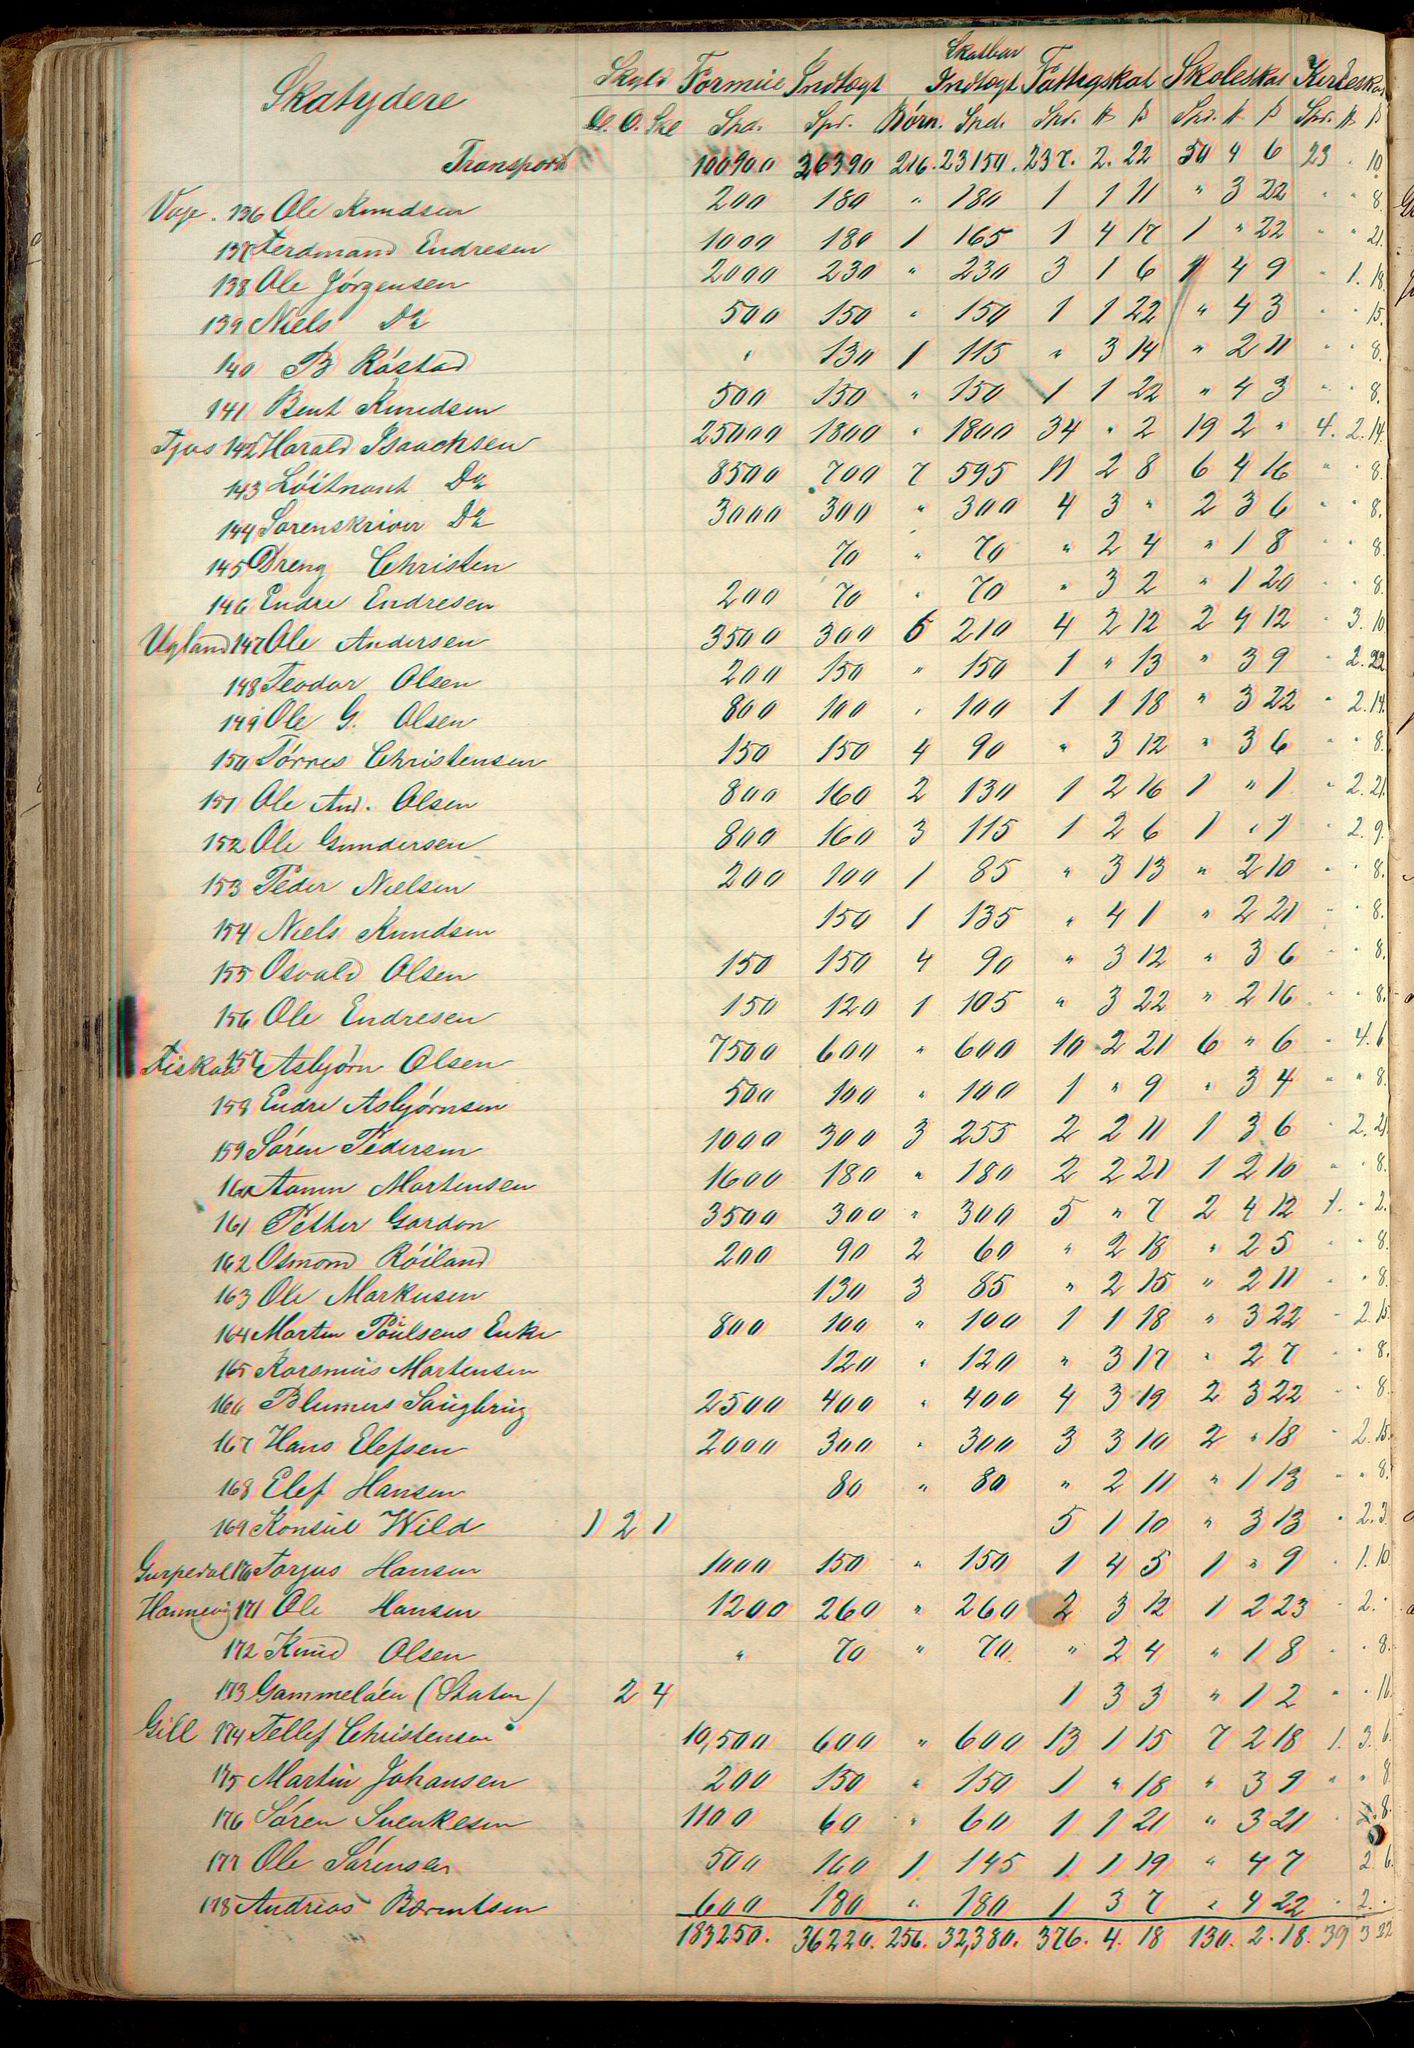 Skatydere Skyld Formue Indtægt Skatbar Indtægt Fattigskat Skoleskat Kirkeskat
D. O. Sk Spd. Spd. Børn. Spd. Spd. ß Spd. ß Spr. ß
Transport 100900 26390 216. 23150. 237. 2. 22 50 4 6 23 . 10
Vaje. 136 Ole Knudsen 200 180 " 180 1 1 11 " 3 22 " " 8.
137 Ferdinand Endresen 1000 180 1 165 1 4 17 1 " 22 " " 21.
138 Ole Jørgensen 2000 230 " 230 3 1 6 1 4 9 " 1. 18.
139 Niels Do 500 150 " 150 1 1 22 " 4 3 " " 15.
140 B Röstad " 130 1 115 " 3 14 " 2 11 " " 8.
141 Bent Knudsen 500 150 " 150 1 1 22 " 4 3 " " 8.
Tjos 142 Harald Isaachsen 25000 1800 " 1800 34 " 2 19 2 " 4. 2. 14.
143 Löitnant Do 8500 700 7 595 11 2 8 6 4 16 " " 8.
144 Sorenskriver Do 3000 300 " 300 4 3 " 2 3 6 " " 8.
145 Dreng Christen 70 " 70 " 2 4 " 1 8 " " 8.
146 Endre Endresen 200 70 " 70 " 3 2 " 1 20 " " 8.
Ugland 147 Ole Andersen 3500 300 6 210 4 2 12 2 4 12 " 3. 10
148 Teodor Olsen 200 150 " 150 1 " 13 " 3 9 " 2. 22
149 Ole G. Olsen 800 100 " 100 1 1 18 " 3 22 " 2. 14.
150 Törres Christensen 150 150 4 90 " 3 12 " 3 6 " " 8.
151 Ole And. Olsen 800 160 2 130 1 2 16 1 " 1 " 2. 21.
152 Ole Gundersen 800 160 3 115 1 2 6 1 " 1 " 2. 9.
153 Peder Nielsen 200 100 1 85 " 3 13 " 2 10 " " 8.
154 Niels Knudsen 150 1 135 " 4 1 " 2 21 " " 8.
155 Osvald Olsen 150 150 4 90 " 3 12 " 3 6 " " 8.
156 Ole Endresen 150 120 1 105 " 3 22 " 2 16 " " 8.
Fiskaa 157 Asbjørn Olsen 7500 600 " 600 10 2 21 6 " 6 " 4. 6
158 Endre Asbjørnsen 500 100 " 100 1 " 9 " 3 4 " " 8.
159 Søren Pedersen 1000 300 3 255 2 2 11 1 3 6 " 2. 21.
160 Aamn Mortensen 1600 180 " 180 2 2 21 1 2 10 " " 8.
161 Petter Gordon 3500 300 " 300 5 " 7 2 4 12 1. " 2.
162 Osmond Röiland 200 90 2 60 " 2 18 " 2 5 " " 8.
163 Ole Markusen 130 3 85 " 2 15 " 2 11 " " 8.
164 Morten Poulsens Enke 800 100 " 100 1 1 18 " 3 22 " 2. 15.
165 Rasmus Mortensen 120 " 120 " 3 17 " 2 7 " " 8.
166 Blumers Saugbrug 2500 400 " 400 4 3 19 2 3 22 " " 8.
167 Hans Elefsen 2000 300 " 300 3 3 10 2 " 18 " 2. 15.
168 Elef Hansen 80 " 80 " 2 11 " 1 13 " " 8.
169 Konsul Wild 1 2 1 5 1 10 " 3 13 " 2. 3.
Gurpedal 170 Torjus Hansen 1000 150 " 150 1 4 5 1 " 9 " 1. 10
Hannevig 171 Ole Hansen 1200 260 " 260 2 3 12 1 2 23 " 2. "
172 Knud Olsen " 70 " 70 " 2 4 " 1 8 " " 8.
173 Gammeløen (Staten) 2 4 1 3 3 " 1 2 " " 16
Gill 174 Tellef Christensen 10,500 600 " 600 13 1 15 7 2 18 1. 3. 6.
175 Martin Johansen 200 150 " 150 1 " 18 " 3 9 " " 8
176 Sören Svenkesen 1100 60 " 60 1 1 21 " 3 21 " 8.
177 Ole Sørensen 500 160 1. 145 1. 1 19 " 4 7 2 6.
178 Andreas Berntsen 600 180 " 180 1 3 7 " 4 22 " 2. "
183250. 36220. 256. 32,380. 376. 4. 18 130. 2. 18. 39 3 22